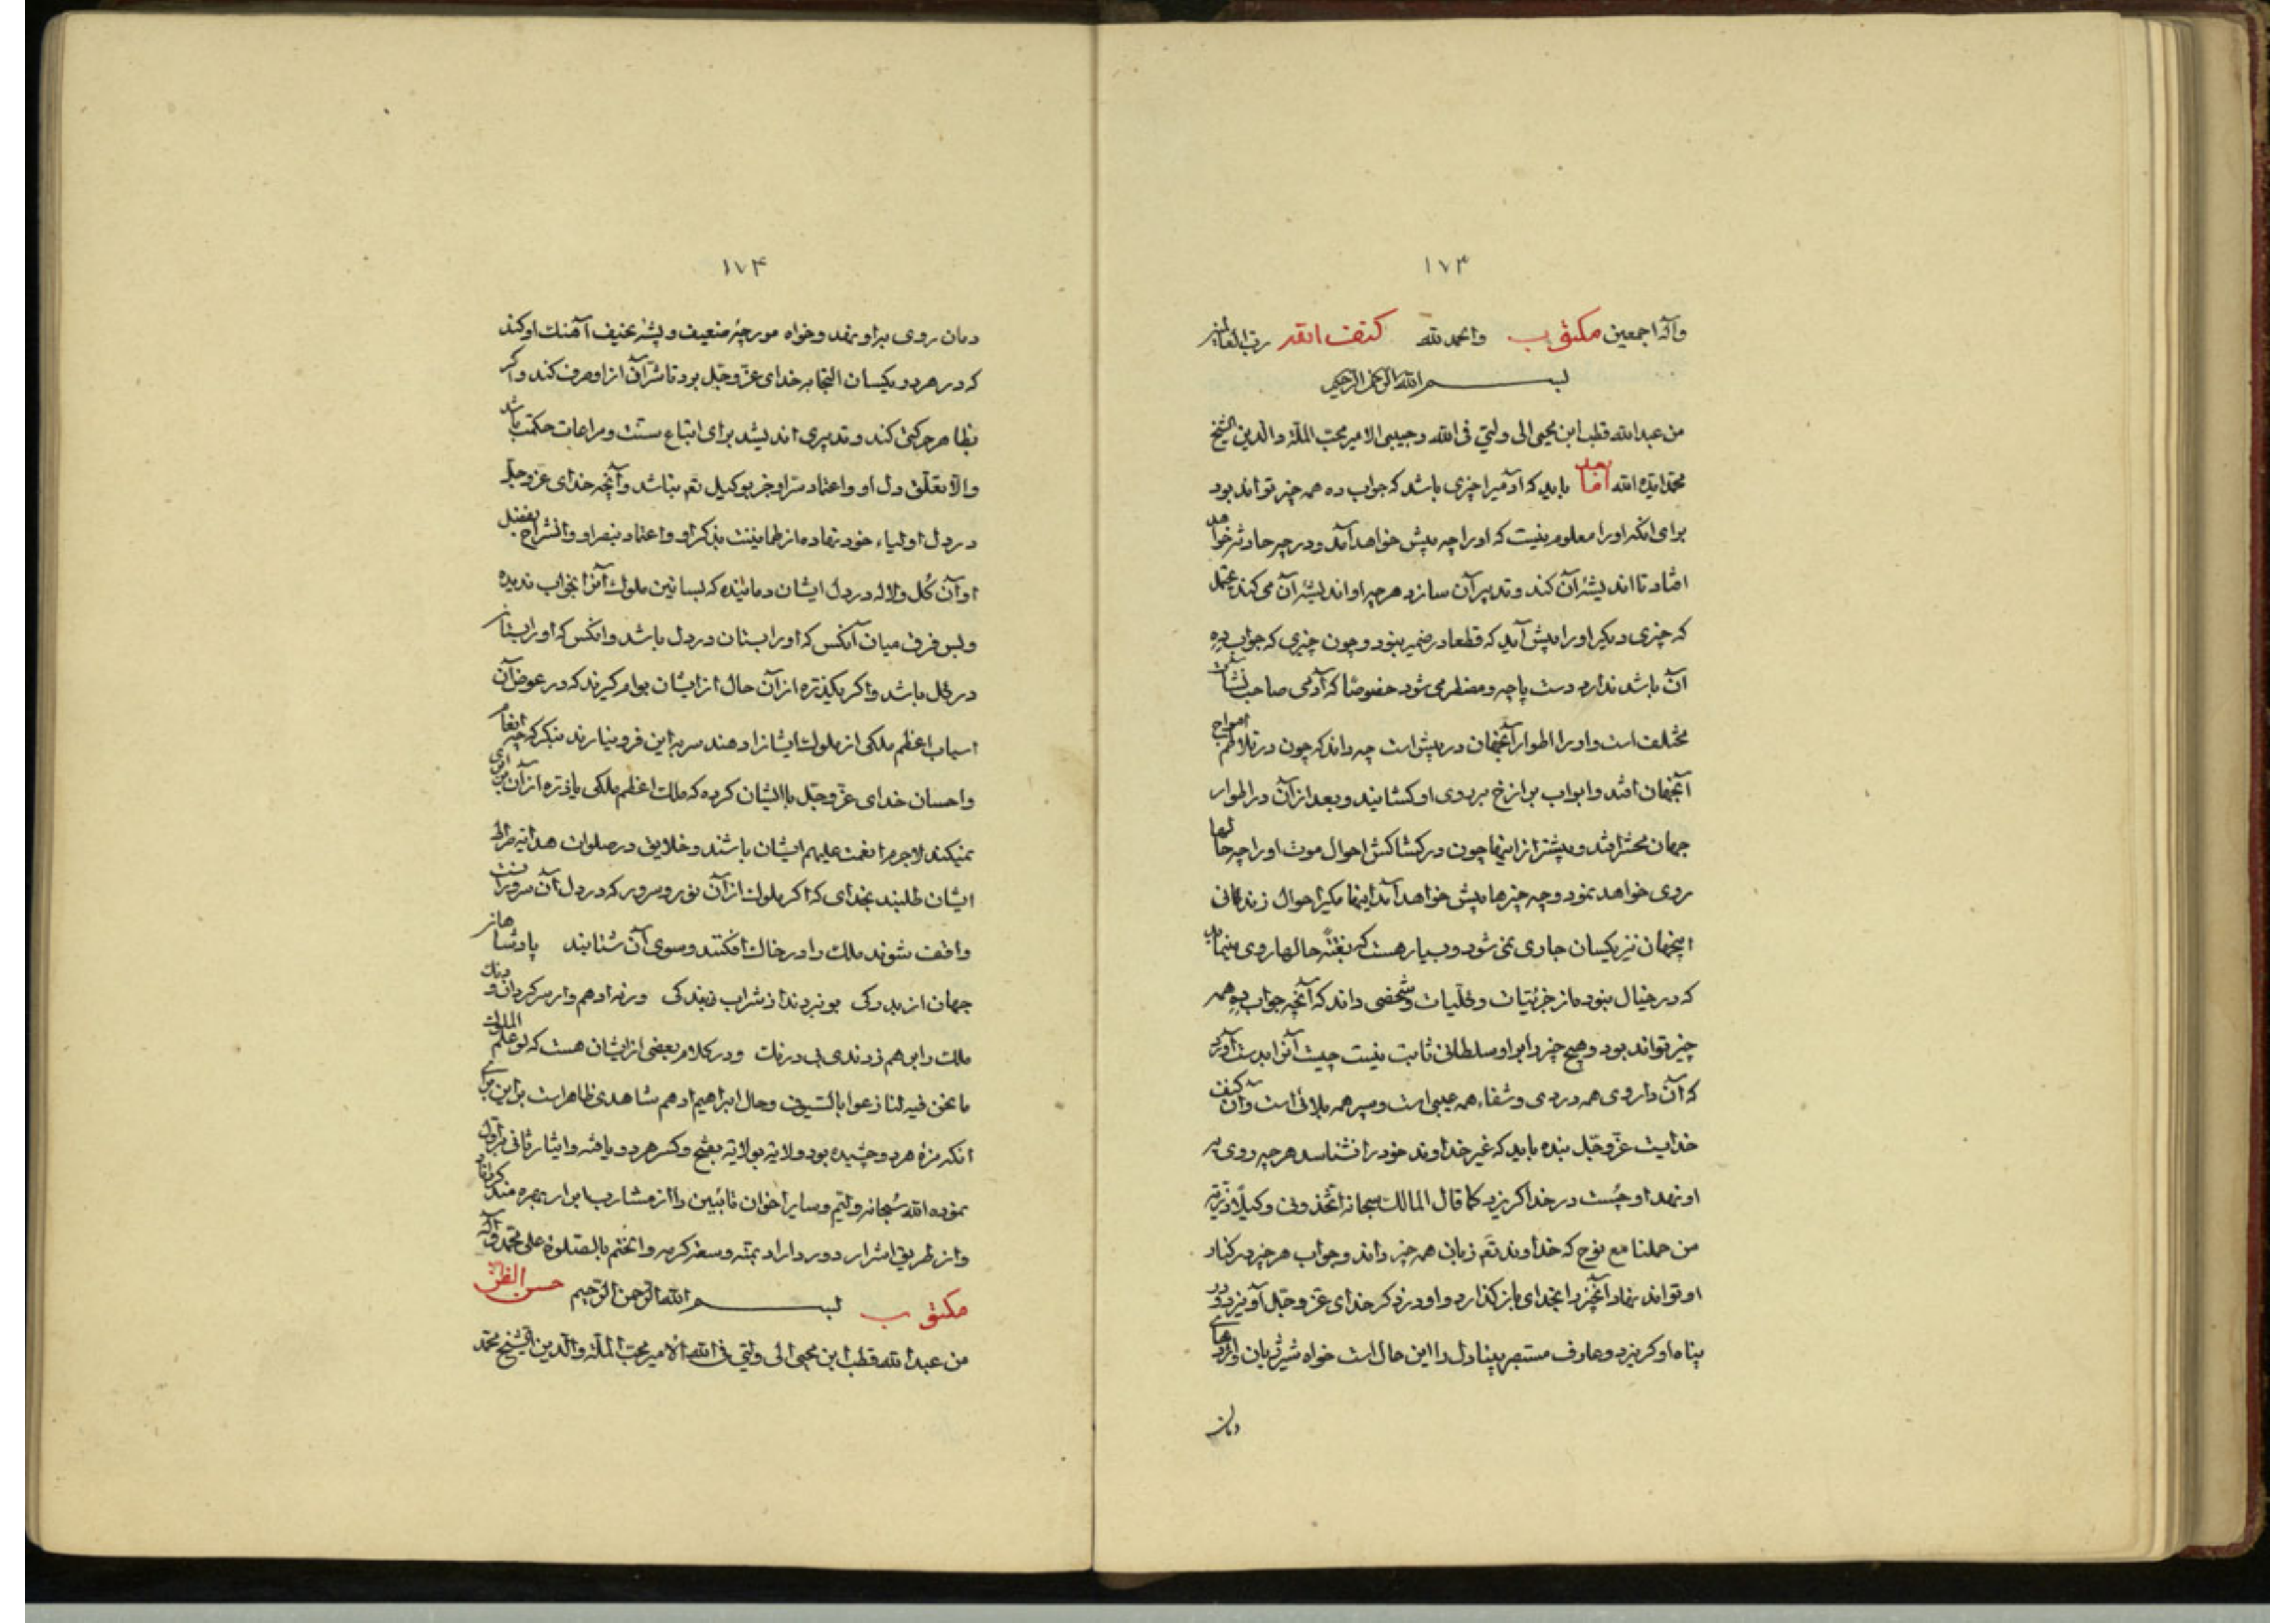 ۱۷۳
وآله اجمعین مکتوب والحمد لله کنف الله رب العالمین
بسم الله الرحمن الرحیم
من عبد الله قطب ابن محیی الی ولیّی فی الله وحبیبی الامیر محبّ الملّة والدین الشیخ
محمّد ایّده الله اما بعد باید که آدمیرا چیزی باشد که جواب ده همه چیز تواند بود
برای انکه اورا معلوم نیست که اورا چه پیش خواهد آمد ودر چه حادثه خواهد
افتاد تا اندیشهٔ آن کند وتدبیر آن سازد هرچه او اندیشهٔ آن می کند محتمل
که چیزی دیگر اورا پیش آید که قطعا در ضمیر نبود وچون چیزی که جواب ده
آن باشد ندارد دست پاچه ومضطر می شود خصوصًا که آدمی صاحب نشآت
مختلف است واورا اطوار آنجهان در پیش است چه داند که چون در تلاطم امواج
آنجهان افتد وابواب برازخ بر روی او کشایند وبعد از آن در اطوار
جهان محشر افتد وپیشتر از اینها چون در کشاکش احوال موت اورا چه حالها
روی خواهد نمود وچه چیزها پیش خواهد آمد اینها بکیر احوال زندگانی
اینجهان نیز یکسان جاری نمی شود وبسیار هست که بغتةً حالها روی مینماید
که در خیال نبوده از جزئیّات وکلّیات وشخصی داند که آنچه جواب ده همه
چیز تواند بود وهیچ چیز را بر او سلطانی ثابت نیست چیست آنرا بدست آورد
که آن داروی همه دردی وشفاء همه عیبی است وسپر همه بلائی است وآن کنف
خدایست عزّ وجلّ بنده باید که غیر خداوند خود را نشناسد هرچه روی بر
او نهد او چُست در خدا گریزد کما قال المالک سبحانه اتّخذونی وکیلًا ذرّیّة
من حملنا مع نوح که خداوند تعّ زبان همه چیز داند وجواب هر چیز بر کنار
او تواند نهاد آنچیز را بخدای باز کذارد واو در ذکر خدای عزّ وجلّ آویزد ودر
پناه او گریزد وعارف مستبصر بینا دل را این حال است خواه شیر ژیان واژدهای
دمان
۱۷۴
دمان روی بر او نهد وخواه مورچهٔ ضعیف وپشهٔ نحیف آهنک او کند
که در هر دو یکسان التجا به خدای عزّ وجلّ برد تا شرّ آن از او صرف کند واکر
بظاهر حرکتی کند وتدبیری اندیشد برای اتباع سنّت ومراعات حکمت باشد
والّا تعلّق دل او واعتماد سرّ او جز بوکیل تعّ نباشد وآنچه خدای عزّ وجلّ
در دل اولیاء خود نهاده از طمانینت بذکر او واعتماد بنصر او وانشراح بفضل
او آن گل ولاله در دل ایشان دمانیده که بساتین ملوک آنرا بخواب ندیده
وبس فرق میان آنکس که اورا بستان در دل باشد وانکس که اورا بستان
در گل باشد واکر یکذره از آن حال از ایشان بوام گیرند که در عوض آن
اسباب اعظم ملکی از ملوک ایشانرا دهند سر به این فرو نیارند بنکر که چه انعام
واحسان خدای عزّ وجلّ با ایشان کرده که ملک اعظم ملکی با ذره از آن برابری
نمیکند لاجرم انعمت علیهم ایشان باشند وخلایق در صلوات هدایة صراط
ایشان طلبند بخدای که اکر ملوک از آن نور وسرور که در دل آن سروران است
واقف شوند ملک را در خاک افکنند وسوی آن شتابند پادشاهان
جهان از بدرکی بو نبردند از شراب بندکی ورنه ادهم وار سرکردان ودنک
ملک را بر هم زدندی بی درنک ودر کلام بعضی از ایشان هست که لو علم الملوک
ما نحن فیه لنازعوا بالسّیوف وحال ابراهیم ادهم شاهدی ظاهر است بر این برای
انکه مزهٔ هر دو چشیده بود ولایة بولایة بفتح وکسر هر دو یافته وایثار ثانی بر اوّل
نموده الله سُبحانه ولیّم وسایر اخوان تائبین را از مشارب ابرار بهره مند کرداناد
واز طریق اشرار دور داراد بمنّه وسعة کرمه والختم بالصّلوة علی محمّد وآله
مکتوب بسم الله الرّحمن الرّحیم حسن الظنّ
من عبد الله قطب ابن محیی الی ولیّی فی الله الامیر محبّ الملّة والدّین الشیخ محمّد